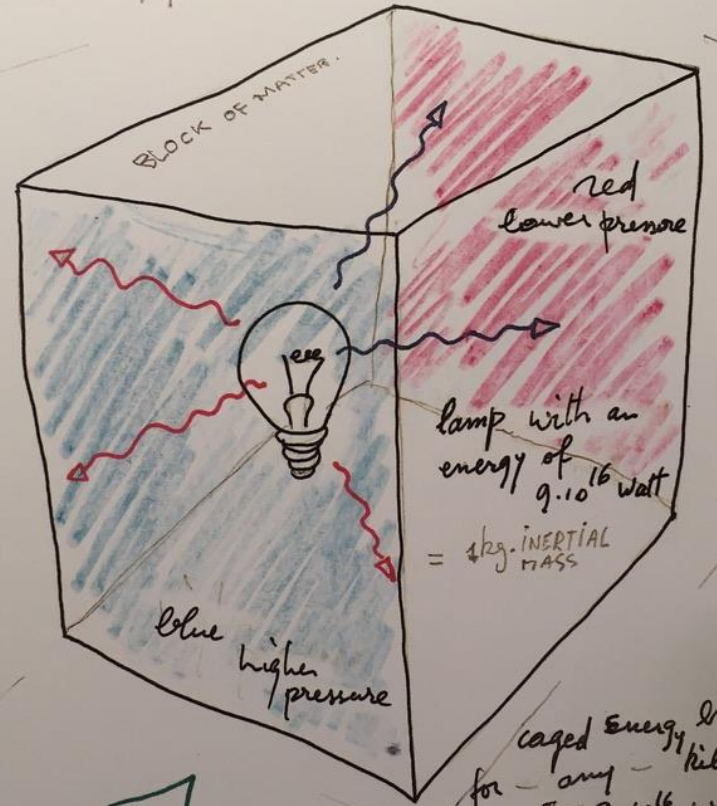 BLOCK OF MATTER.
red
lower pressure
lamp with an
energy of
9.10¹⁶ watt
= 1kg. INERTIAL
MASS
blue
higher
pressure
caged Energy
for - any -